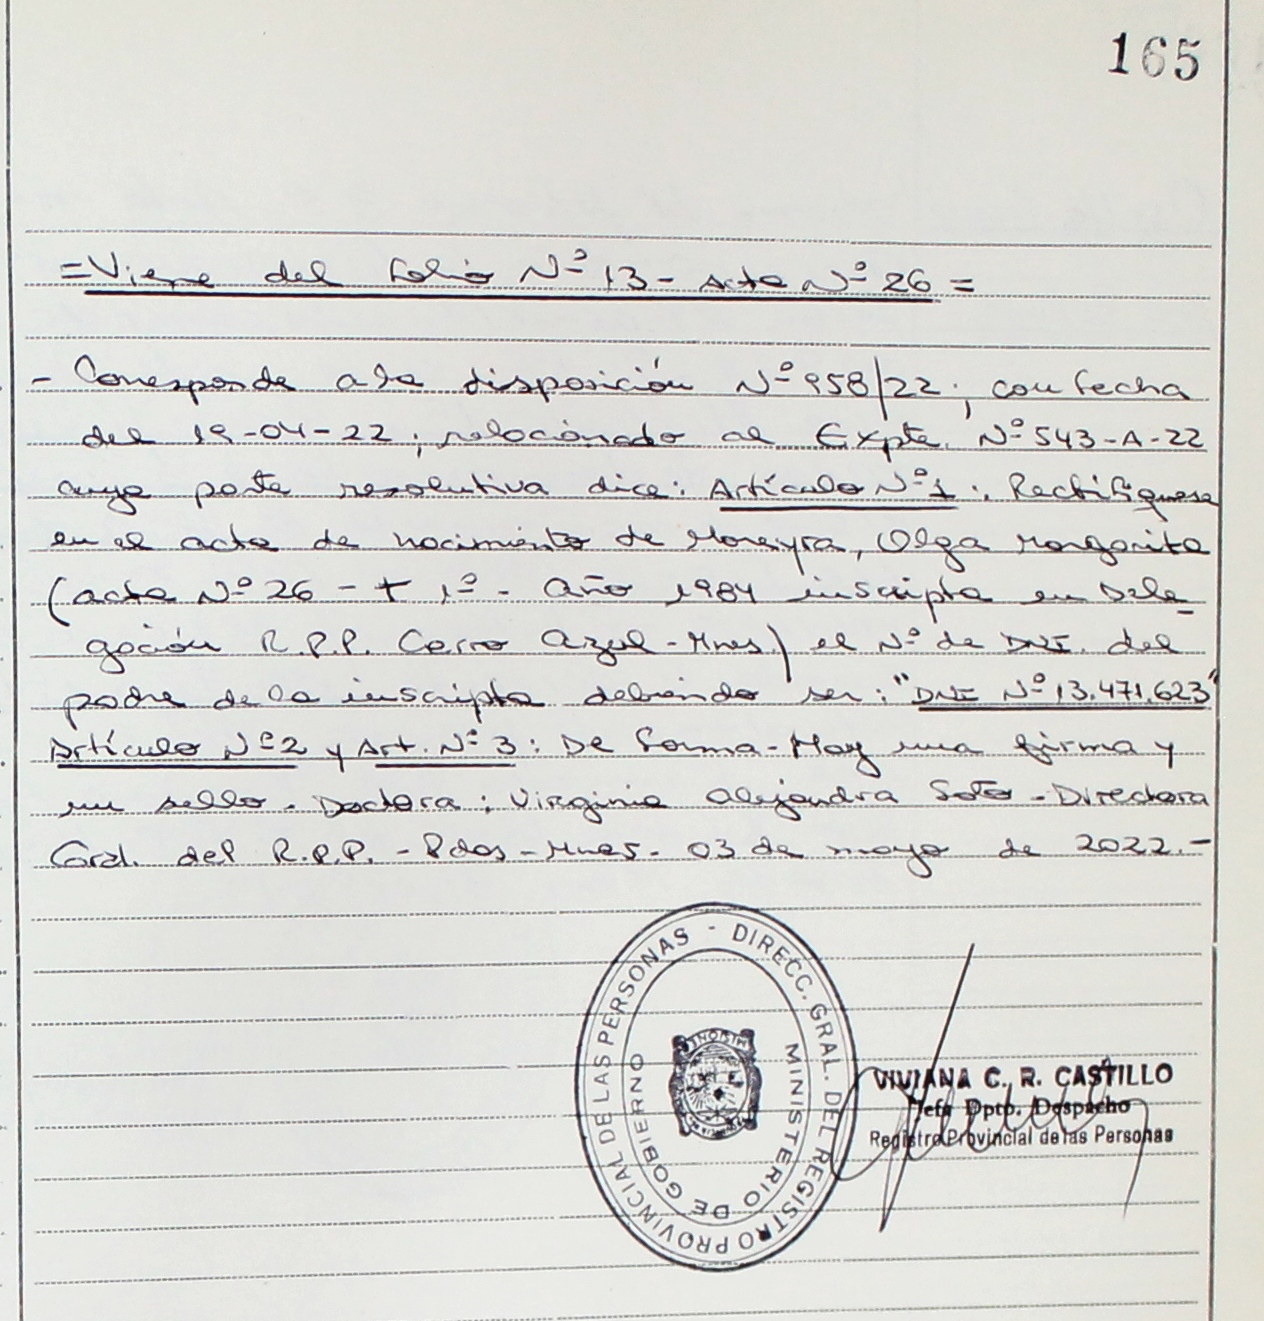 165
=Viene del folio Nº 13- Acta Nº 26=
- Corresponde a la disposición Nº 958/22; con fecha
del 19-04-22; relacionado al Expte. Nº 543-A-22
cuya parte resolutiva dice: Artículo Nº 1:. Rectifíquese
en el acta de nacimiento de Moreyra, Olga Margarita
(acta Nº 26 - t 1º - Año 1984 inscripta en Dele-
gación R.P.P. Cerro Azul-Mnes.) el Nº de DNI. del
padre de la inscripta debiendo ser: "DNI Nº 13.471.623"
Artículo Nº 2 y Art. Nº 3: De forma-Hay una firma y
un sello. Doctora: Virginia Alejandra Soto - Directora
Gral. del R.P.P. - Pdas - Mnes. 03 de mayo de 2022.-
DIRECC. GRAL. DEL REGISTRO PROVINCIAL DE LAS PERSONAS -
MINISTERIO DE GOBIERNO
MISIONES
VIVIANA C. R. CASTILLO
Jefa Dpto. Despacho
Registro Provincial de las Personas